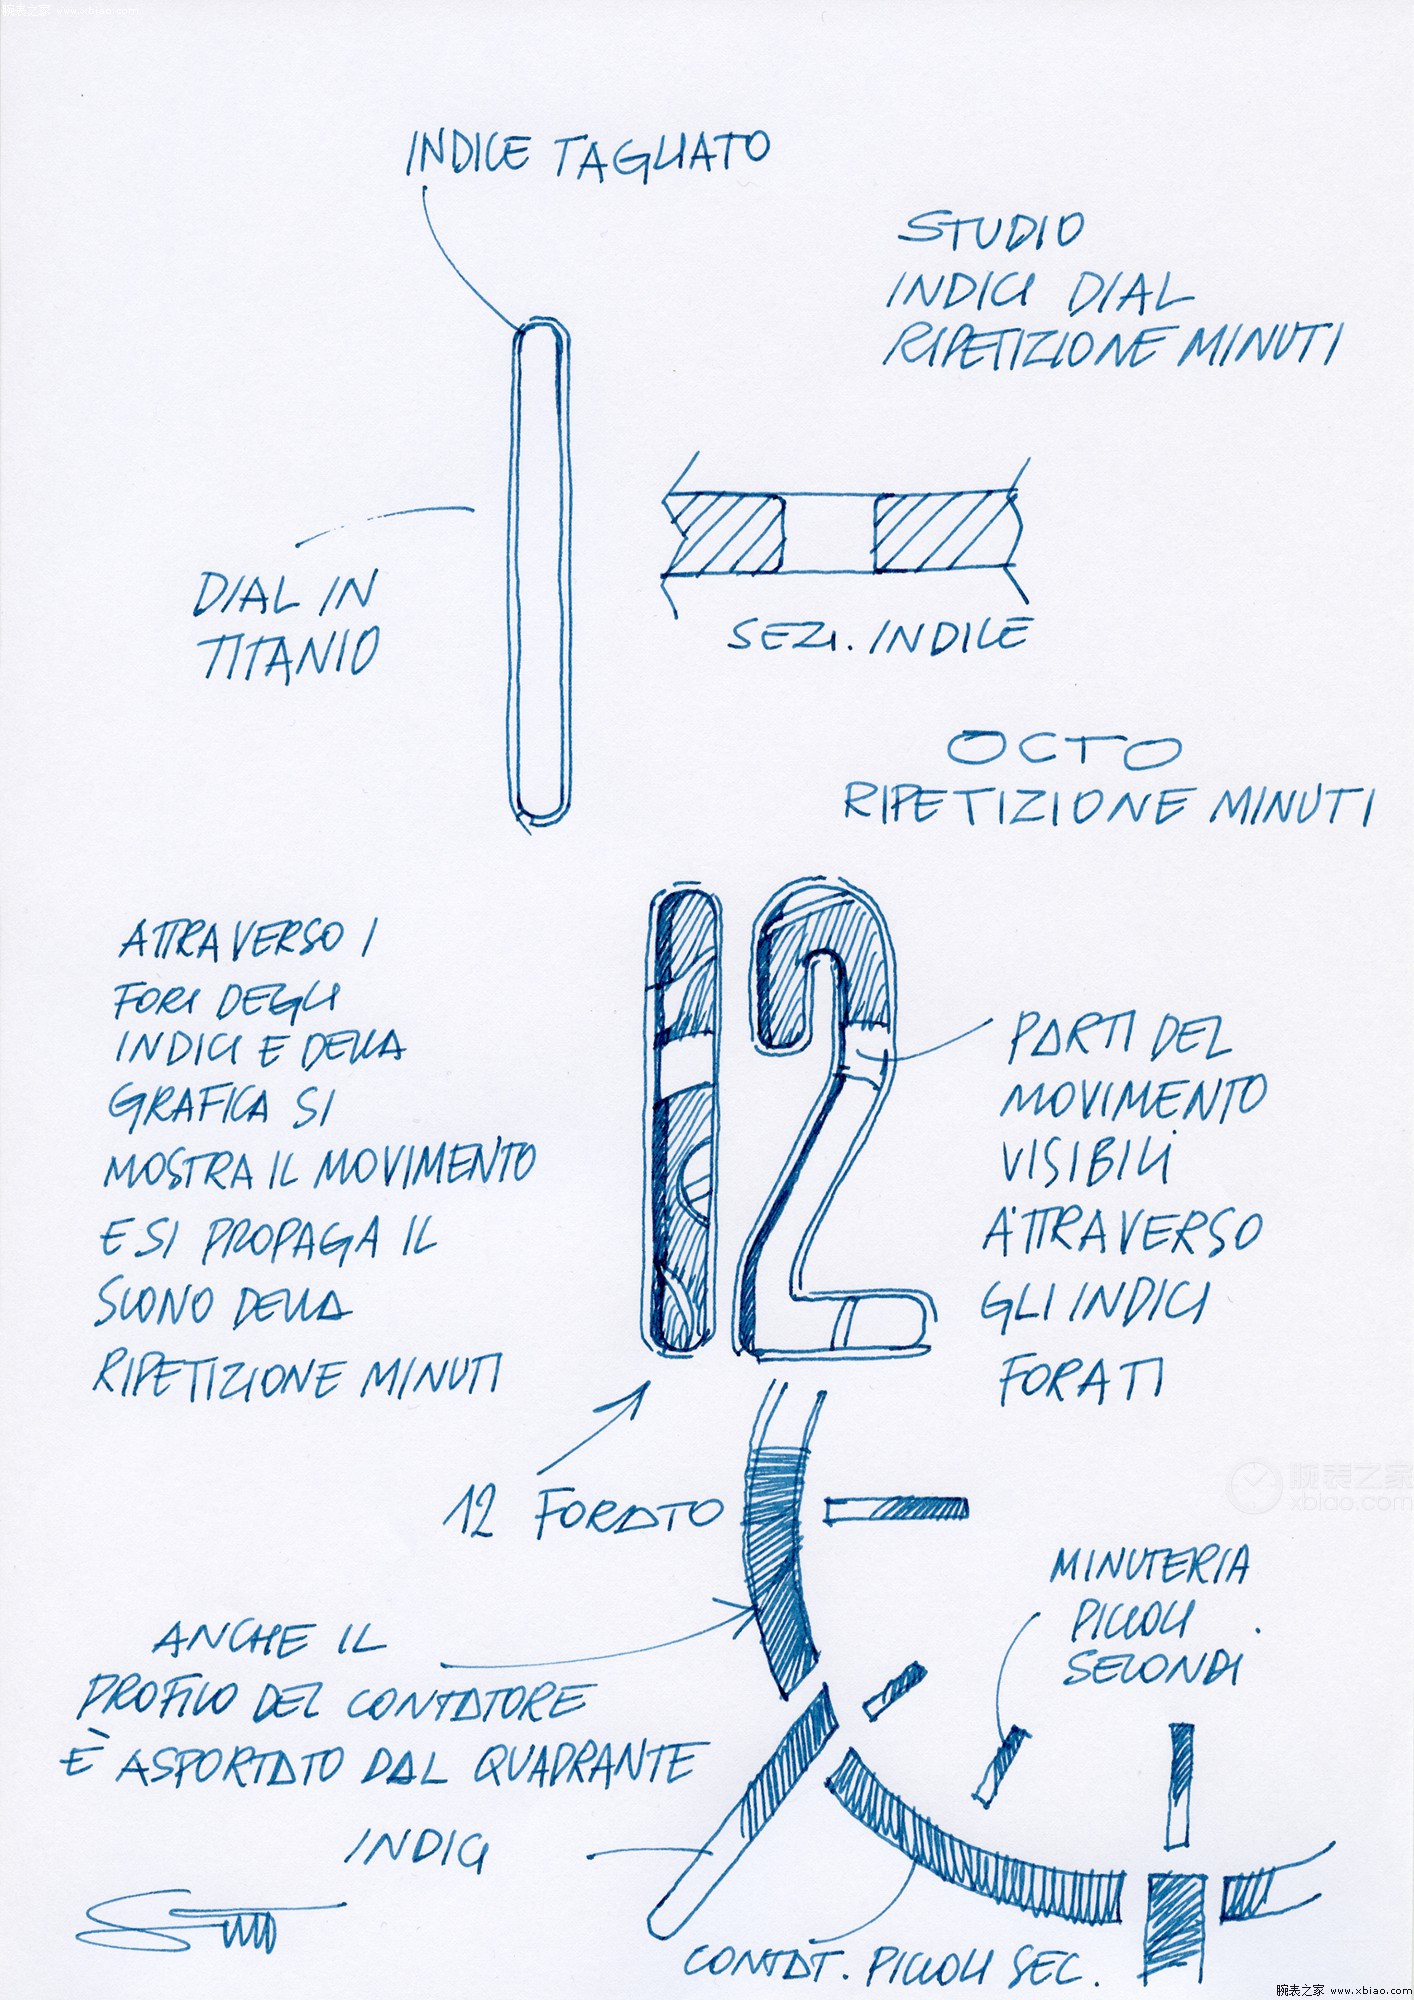 腕表之家 www.xbiao.com
INDICE TAGLIATO
STUDIO
INDICI DIAL
RIPETIZIONE MINUTI
DIAL IN
TITANIO
SEZI. INDICE
OCTO
RIPETIZIONE MINUTI
ATTRAVERSO I
FORI DEGLI
INDICI E DELLA
GRAFICA SI
MOSTRA IL MOVIMENTO
E SI PROPAGA IL
SUONO DELLA
RIPETIZIONE MINUTI
12
PARTI DEL
MOVIMENTO
VISIBILI
ATTRAVERSO
GLI INDICI
FORATI
12 FORATO
腕表之家
xbiao.com
MINUTERIA
PICCOLI
SECONDI
ANCHE IL
PROFILO DEL CONTATORE
È ASPORTATO DAL QUADRANTE
INDICI
CONTAT. PICCOLI SEC.
腕表之家 www.xbiao.com